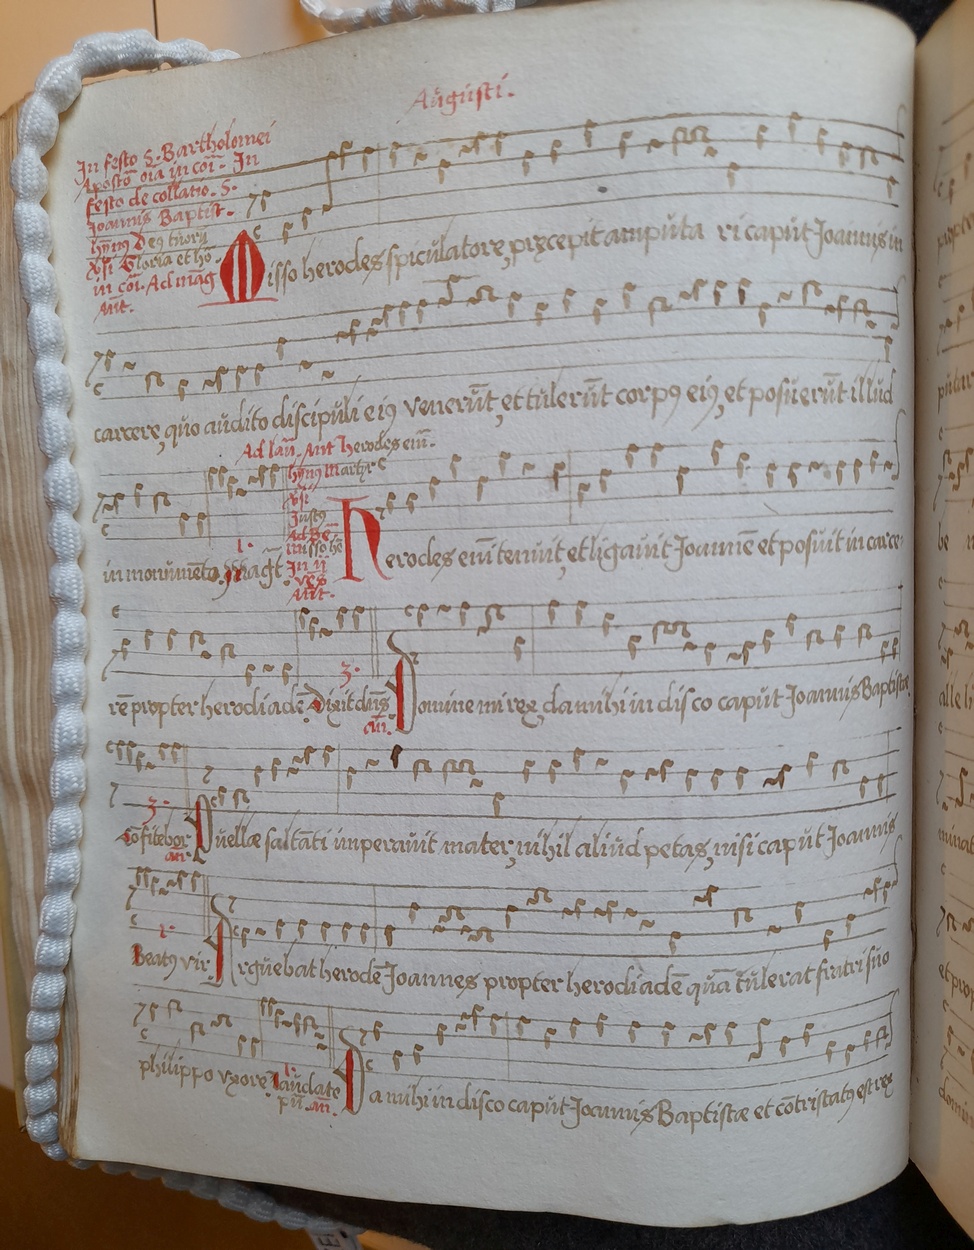 Augusti.
In festo S. Bartholomei
Aposto oia in coi. In
festo de collatio. S.
Joannis Baptist.
hyng Deg tuorų
Gloria et ho.
in coi. Ad mag
Ant.
Misso herodes spiculatore, pręcepit amputa ri caput Joannis in
carcere, quo audito discipuli eiꝯ venerūt, et tulerūt corpꝯ eiꝯ, et posuerūt illud
Ad lau. Ant herodes eni.
hyng martyr
Justꝯ
misso he
In ii
ves
Ant.
in monumēto. Magt. 1.
Herodes eni tenuit, et ligauit Joannē et posuit in carce-
rē propter herodiadē Dixit dns 3. an.
Domine mi rex, da mihi in disco caput Joannis Baptistæ
3. cōfitebor an.
Puellæ saltāti imperauit mater, nihil aliud petas, nisi caput Joannis
1. Beatꝯ vir.
Arguebat herodē Joannes propter herodiadē quā tulerat fratri suo
philippo vxorē 1. laudate pū. an.
Da mihi in disco caput Joannis Baptistæ et cōtristatꝯ est rex